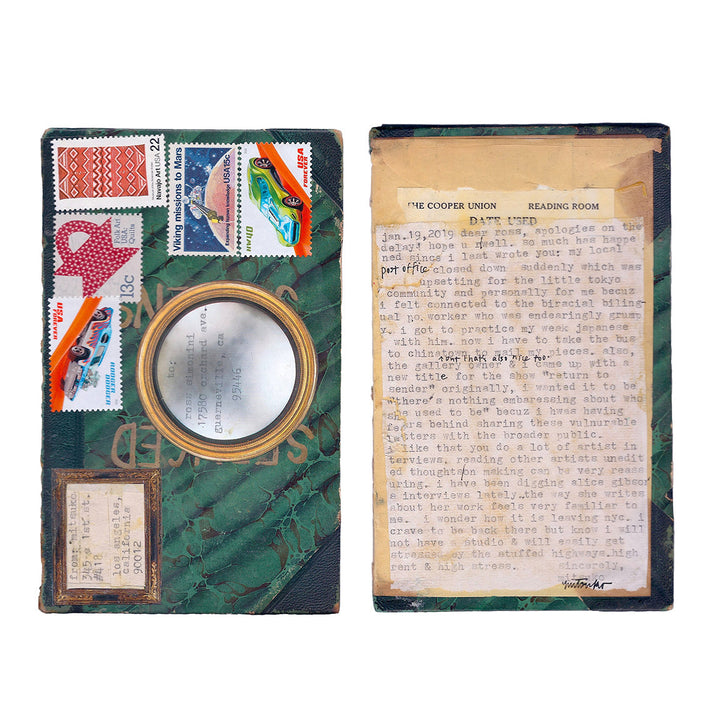 Navajo Art USA 22
Folk Art
USA:
Quilts
13c
Viking missions to Mars
Exploring human knowledge USA 15c
USA
FOREVER
USA
FOREVER
RODGER
DODGER
SE
to:
ross simonini
17580 orchard ave.
guerneville, ca
95446
from: mitsuko
345 e 1st st.
#418
los angeles,
california
90012
THE COOPER UNION READING ROOM
DATE USED
jan.19,2019 dear ross, apologies on the
delay! hope u r well. so much has happe
ned since i last wrote you: my local
post office closed down suddenly which was
upsetting for the little tokyo
community and personally for me becuz
i felt connected to the biracial biling-
ual po worker who was endearingly grump
y. i got to practice my weak japanese
with him. now i have to take the bus
to chinatown to mail my pieces. also,
but that's also nice too.
the gallery owner & i came up with a
new title for the show "return to
sender" originally, i wanted it to be
"there's nothing embaressing about who
she used to be" becuz i was having
fears behind sharing these vulnurable
letters with the broader public.
i like that you do a lot of artist in
terviews. reading other artists unedit
ed thoughts on making can be very reass
uring. i have been digging alice gibso
interviews lately. the way she writes
about her work feels very familiar to
me. i wonder how it is leaving nyc. i
crave to be back there but know i will
not have a studio & will easily get
stressed by the stuffed highways.high
rent & high stress. sincerely,
mitsuko